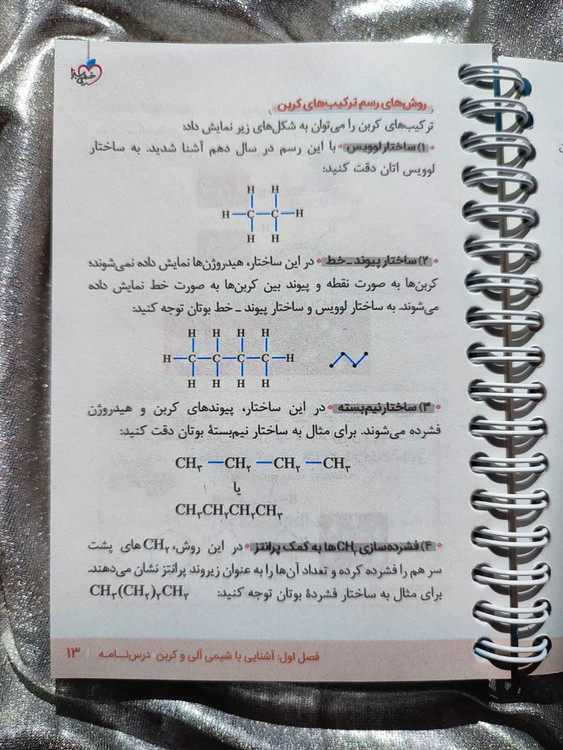 خیلی سبز
روش‌های رسم ترکیب‌های کربن
ترکیب‌های کربن را می‌توان به شکل‌های زیر نمایش داد:
۱) ساختار لوویس • با این رسم در سال دهم آشنا شدید. به ساختار
لوویس اتان دقت کنید:
H H
H C C H
H H
۲) ساختار پیوند ـ خط • در این ساختار، هیدروژن‌ها نمایش داده نمی‌شوند؛
کربن‌ها به صورت نقطه و پیوند بین کربن‌ها به صورت خط نمایش داده
می‌شوند. به ساختار لوویس و ساختار پیوند ـ خط بوتان توجه کنید:
H H H H
H C C C C H
H H H H
۳) ساختار نیم‌بسته • در این ساختار، پیوندهای کربن و هیدروژن
فشرده می‌شوند. برای مثال به ساختار نیم‌بستهٔ بوتان دقت کنید:
CH₃ — CH₂ — CH₂ — CH₃
یا
CH₃CH₂CH₂CH₃
۴) فشرده‌سازی CH₂ها به کمک پرانتز • در این روش، CH₂های پشت
سر هم را فشرده کرده و تعداد آن‌ها را به عنوان زیروند پرانتز نشان می‌دهند.
برای مثال به ساختار فشردهٔ بوتان توجه کنید: CH₃(CH₂)₂CH₃
فصل اول: آشنایی با شیمی آلی و کربن درس‌نـامـه ۱۳